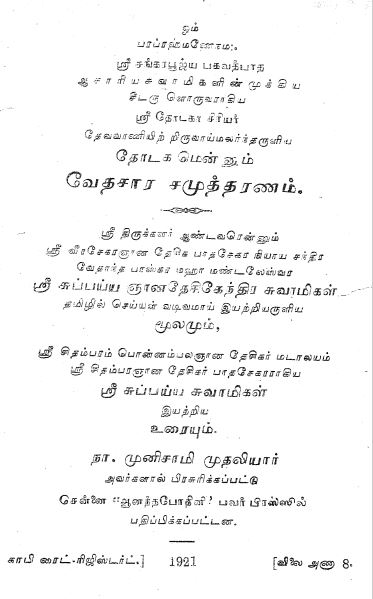 ஓம்
பரப்ரஹ்மணேநம:.
ஸ்ரீ சங்கரபூஜ்ய பகவத்பாத
ஆசாரியசுவாமிகளின் முக்கிய
சீடரு ளொருவராகிய
ஸ்ரீ தோடகா சிரியர்
தேவவாணியிற் றிருவாய்மலர்ந்தருளிய
தோடக மென்னும்
வேதசார சமுத்தரணம்.
ஸ்ரீ திருக்களர் ஆண்டவரென்னும்
ஸ்ரீ வீரசேகரஞான தேசிக பாதசேகர
வேதாந்த பாஸ்கர மஹா மண்டலேஸ்வர
ஸ்ரீ சுப்பய்ய ஞானதேசிகேந்திர சுவாமிகள்
தமிழில் செய்யுள் வடிவமாய் இயற்றியருளிய
மூலமும்,
ஸ்ரீ சிதம்பரம் பொன்னம்பலஞான தேசிகர் மடாலயம்
ஸ்ரீ சிதம்பரஞான தேசிகர் பாதசேகரராகிய
ஸ்ரீ சுப்பய்ய சுவாமிகள்
இயற்றிய
உரையும்.
நா. முனிசாமி முதலியார்
அவர்களால் பிரசுரிக்கப்பட்டு
சென்னை "ஆனந்தபோதினி" பவர் பிரஸ்ஸில்
பதிப்பிக்கப்பட்டன.
காபி ரைட்-ரிஜிஸ்டர்ட்.] 1921 [விலை அணா 8.